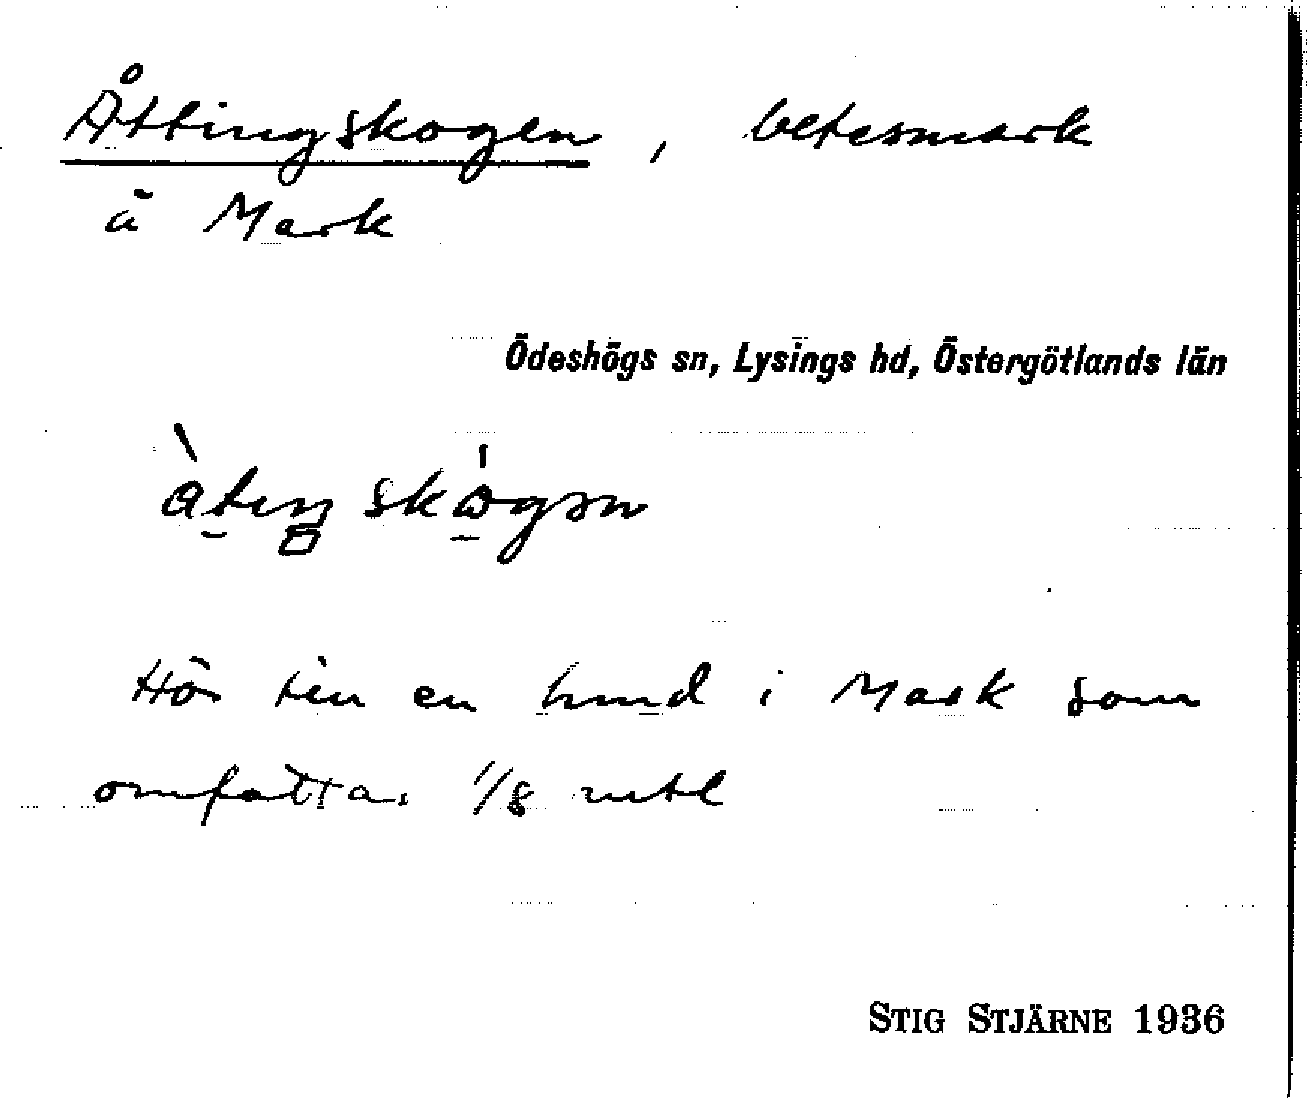 Åttingskogen, betesmark
å Mark
Ödeshögs sn, Lysings hd, Östergötlands län
Hör till en lund i Mark som
omfattar 1/8 mtl
STIG STJÄRNE 1936